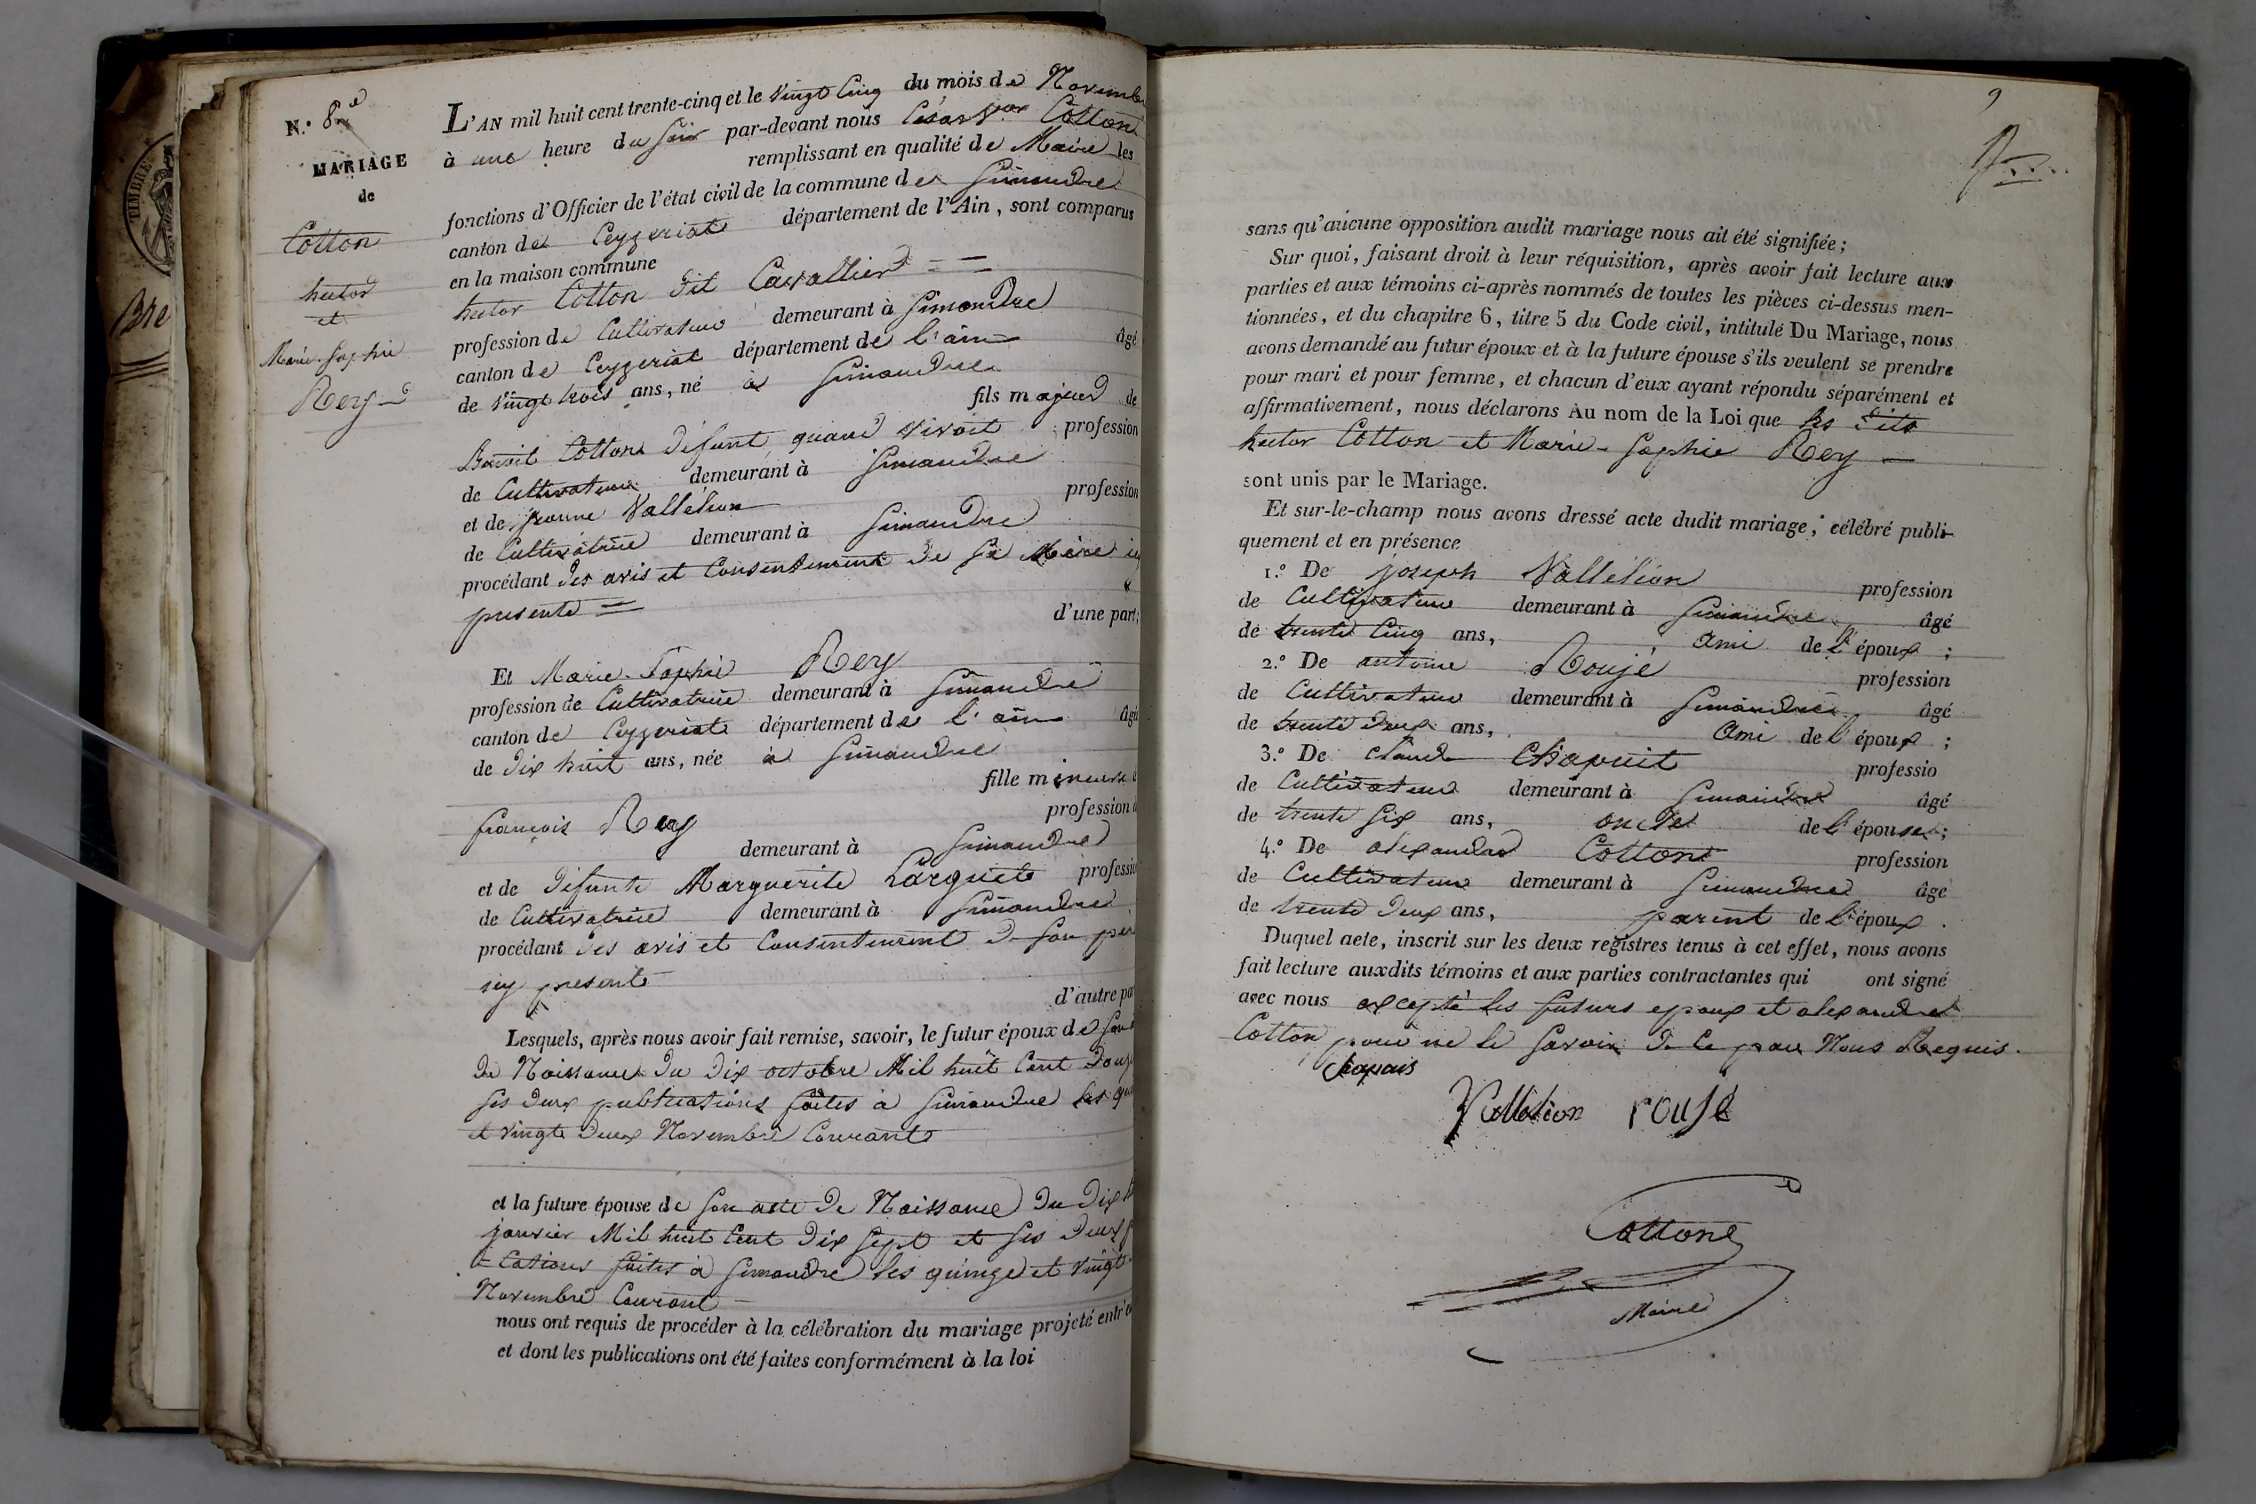 TIMBRE
Bre
N.° 8.me
MARIAGE
de
Cotton
hector
et
Marie-Sophie
Rey
L'AN mil huit cent trente-cinq et le vingt cinq du mois de Novembre
à une heure du soir par-devant nous César Cotton
remplissant en qualité de Maire les
fonctions d'Officier de l'état civil de la commune de Simandre
canton de Ceyzeriat département de l'Ain, sont comparus
en la maison commune
hector Cotton dit Cavallier
profession de Cultivateur demeurant à Simandre
canton de Ceyzeriat département de l'ain âgé
de vingt trois ans, né à Simandre
fils majeur de
Benoit Cotton défunt, quand vivoit profession
de Cultivateur demeurant à Simandre
et de jeanne Vallélian profession
de Cultivatrice demeurant à Simandre
procédant des avis et Consentement de sa Mère icy
presente d'une part;
Et Marie-Sophie Rey
profession de Cultivatrice demeurant à Simandre
canton de Ceyzeriat département de l'ain âgé
de dix huit ans, née à Simandre
fille mineure
françois Rey profession
demeurant à Simandre
et de défunte Marguerite professio
de Cultivatrice demeurant à Simandre
procédant des avis et Consentement de son père
icy present
d'autre pa
Lesquels, après nous avoir fait remise, savoir, le futur époux de son
de Naissance du dix octobre Mil huit Cent douze
ses deux publications faites à Simandre les
et vingt deux Novembre Courant
et la future épouse de son acte de Naissance du dix
janvier Mil huit Cent dix sept et ses deux p
= cations faites à Simandre les quinze et vingt
Novembre Courant
nous ont requis de procéder à la célébration du mariage projeté entr'e
et dont les publications ont été faites conformément à la loi
9
sans qu'aucune opposition audit mariage nous ait été signifiée;
Sur quoi, faisant droit à leur réquisition, après avoir fait lecture aux
parties et aux témoins ci-après nommés de toutes les pièces ci-dessus men-
tionnées, et du chapitre 6, titre 5 du Code civil, intitulé Du Mariage, nous
avons demandé au futur époux et à la future épouse s'ils veulent se prendre
pour mari et pour femme, et chacun d'eux ayant répondu séparément et
affirmativement, nous déclarons Au nom de la Loi que les dits
hector Cotton et Marie-Sophie Rey
sont unis par le Mariage.
Et sur-le-champ nous avons dressé acte dudit mariage, célébré publi-
quement et en présence
1.° De joseph Vallélian profession
de Cultivateur demeurant à Simandre âgé
de trente Cinq ans, ami de l'époux;
2.° De antoine Roujé profession
de Cultivateur demeurant à Simandre âgé
de trente deux ans, ami de l'époux;
3.° De claude Chapuit professio
de Cultivateur demeurant à Simandre âgé
de trente six ans, oncle de l'épouse;
4.° De alexandre Cotton profession
de Cultivateur demeurant à Simandre âgé
de trente deux ans, parent de l'époux.
Duquel acte, inscrit sur les deux registres tenus à cet effet, nous avons
fait lecture auxdits témoins et aux parties contractantes qui ont signé
avec nous excepté les futurs epoux et alexandre
Cotton pour ne le savoir de ce par Nous Requis.
Chapuis
Vallélion rouse
Cotton
Maire